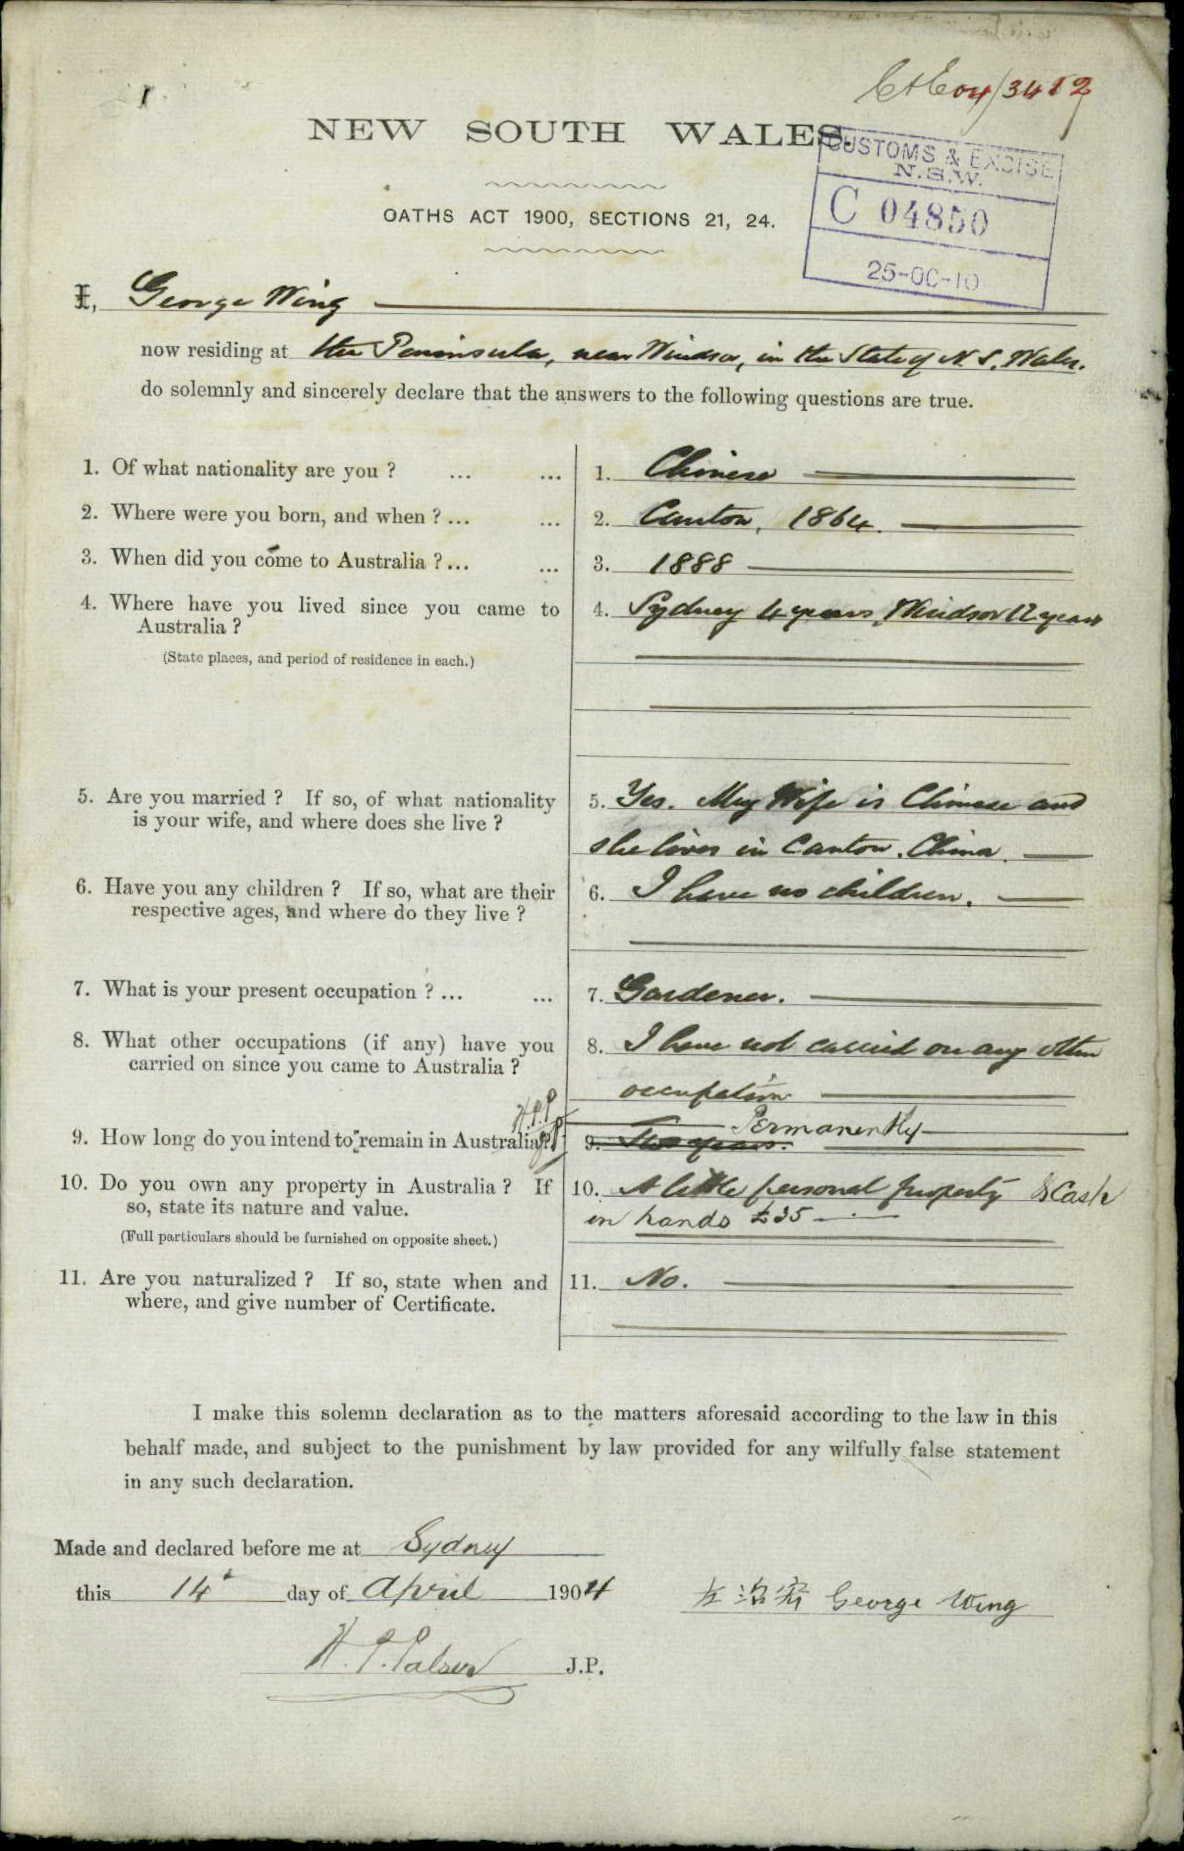 1
NEW SOUTH WALES.
CUSTOMS & EXCISE
N.S.W.
C 04850
25-OC-10
OATHS ACT 1900, SECTIONS 21, 24.
I, George Wing
now residing at the Peninsula, near Windsor, in the State of N. S. Wales.
do solemnly and sincerely declare that the answers to the following questions are true.
1. Of what nationality are you ? ... ... 1. Chinese
2. Where were you born, and when ? ... ... 2. Canton, 1864.
3. When did you come to Australia ? ... ... 3. 1888
4. Where have you lived since you came to 4. Sydney 4 years, Windsor 12 years
Australia ?
(State places, and period of residence in each.)
5. Are you married ? If so, of what nationality 5. Yes. My Wife is Chinese and
is your wife, and where does she live ? she lives in Canton, China.
6. Have you any children ? If so, what are their 6. I have no children.
respective ages, and where do they live ?
7. What is your present occupation ? ... ... 7. Gardener.
8. What other occupations (if any) have you 8. I have not carried on any other
carried on since you came to Australia ? occupation
H.P.P. Permanently
9. How long do you intend to remain in Australia ? 9. Two years.
10. Do you own any property in Australia ? If 10. A little personal property & Cash
so, state its nature and value. in hands £35
(Full particulars should be furnished on opposite sheet.)
11. Are you naturalized ? If so, state when and 11. No.
where, and give number of Certificate.
I make this solemn declaration as to the matters aforesaid according to the law in this
behalf made, and subject to the punishment by law provided for any wilfully false statement
in any such declaration.
Made and declared before me at Sydney
this 14 day of April 1904
George Wing
J.P.